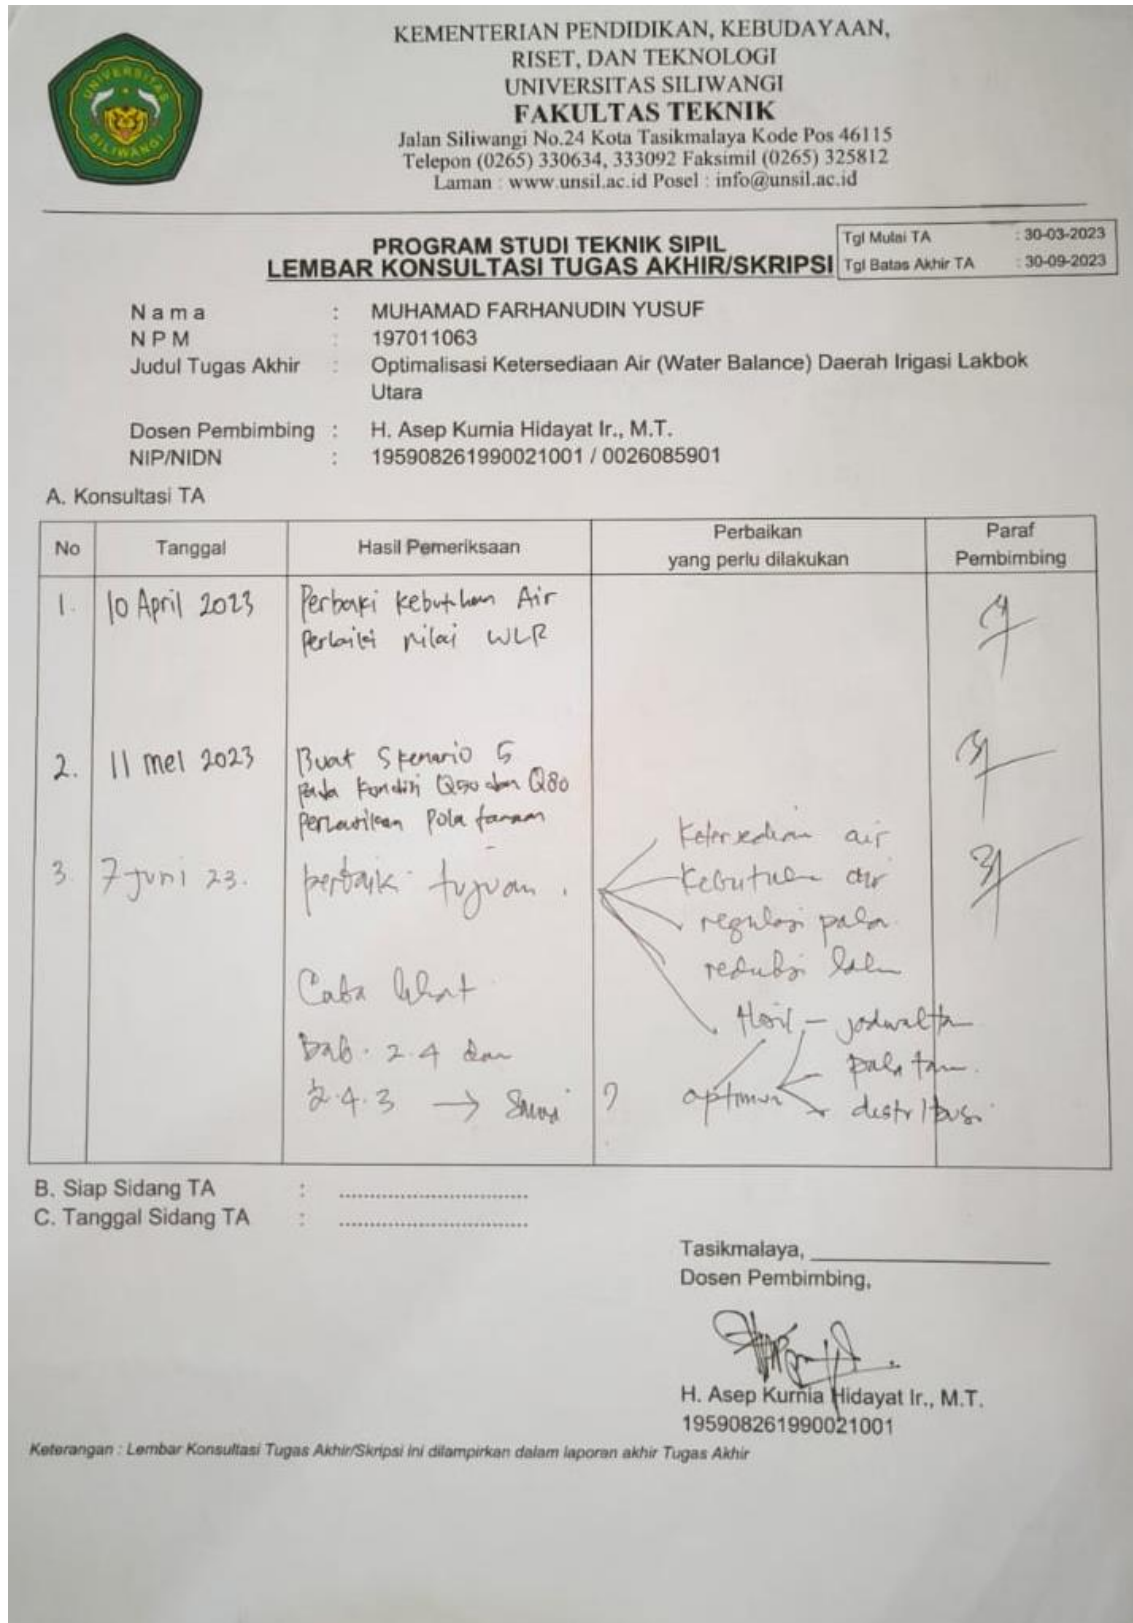 UNIVERSITAS
SILIWANGI
KEMENTERIAN PENDIDIKAN, KEBUDAYAAN,
RISET, DAN TEKNOLOGI
UNIVERSITAS SILIWANGI
FAKULTAS TEKNIK
Jalan Siliwangi No.24 Kota Tasikmalaya Kode Pos 46115
Telepon (0265) 330634, 333092 Faksimil (0265) 325812
Laman : www.unsil.ac.id Posel : info@unsil.ac.id
PROGRAM STUDI TEKNIK SIPIL
LEMBAR KONSULTASI TUGAS AKHIR/SKRIPSI
Tgl Mulai TA : 30-03-2023
Tgl Batas Akhir TA : 30-09-2023
Nama : MUHAMAD FARHANUDIN YUSUF
NPM : 197011063
Judul Tugas Akhir : Optimalisasi Ketersediaan Air (Water Balance) Daerah Irigasi Lakbok
Utara
Dosen Pembimbing : H. Asep Kurnia Hidayat Ir., M.T.
NIP/NIDN : 195908261990021001 / 0026085901
A. Konsultasi TA
No Tanggal Hasil Pemeriksaan Perbaikan yang perlu dilakukan Paraf Pembimbing
1. 10 April 2023 Perbaiki Kebutuhan Air
Perbaiki nilai WLR
2. 11 Mei 2023 Buat Skenario 5
pada Kondisi Q50 dan Q80
Pola tanam
3. 7 Juni 23. perbaiki tujuan.
Ketersediaan air
Kebutuhan air
regulasi pola
reduksi
Coba lihat
Hasil - jadwal
Bab. 2.4 dan
pola tan.
2.4.3 → ?
optimasi distribusi
B. Siap Sidang TA : ..............................
C. Tanggal Sidang TA : ..............................
Tasikmalaya, ____________________
Dosen Pembimbing,
H. Asep Kurnia Hidayat Ir., M.T.
195908261990021001
Keterangan : Lembar Konsultasi Tugas Akhir/Skripsi ini dilampirkan dalam laporan akhir Tugas Akhir